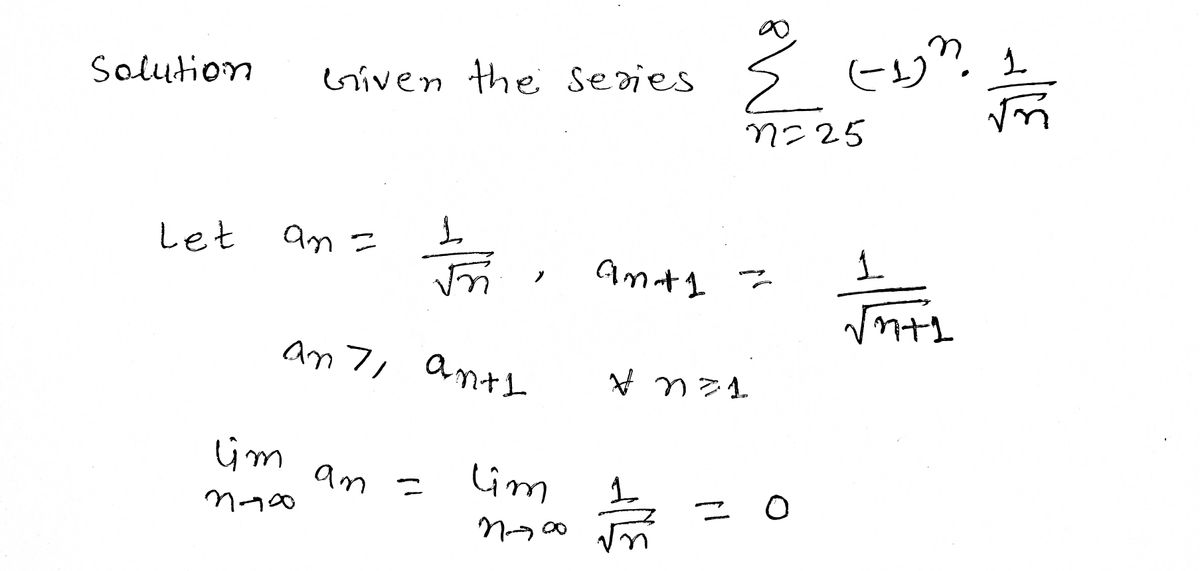 Solution Given the series ∑_{n=25}^{∞} (-1)^n · 1/√n
Let a_n = 1/√n , a_{n+1} = 1/√(n+1)
a_n ≥ a_{n+1} ∀ n ≥ 1
lim_{n→∞} a_n = lim_{n→∞} 1/√n = 0